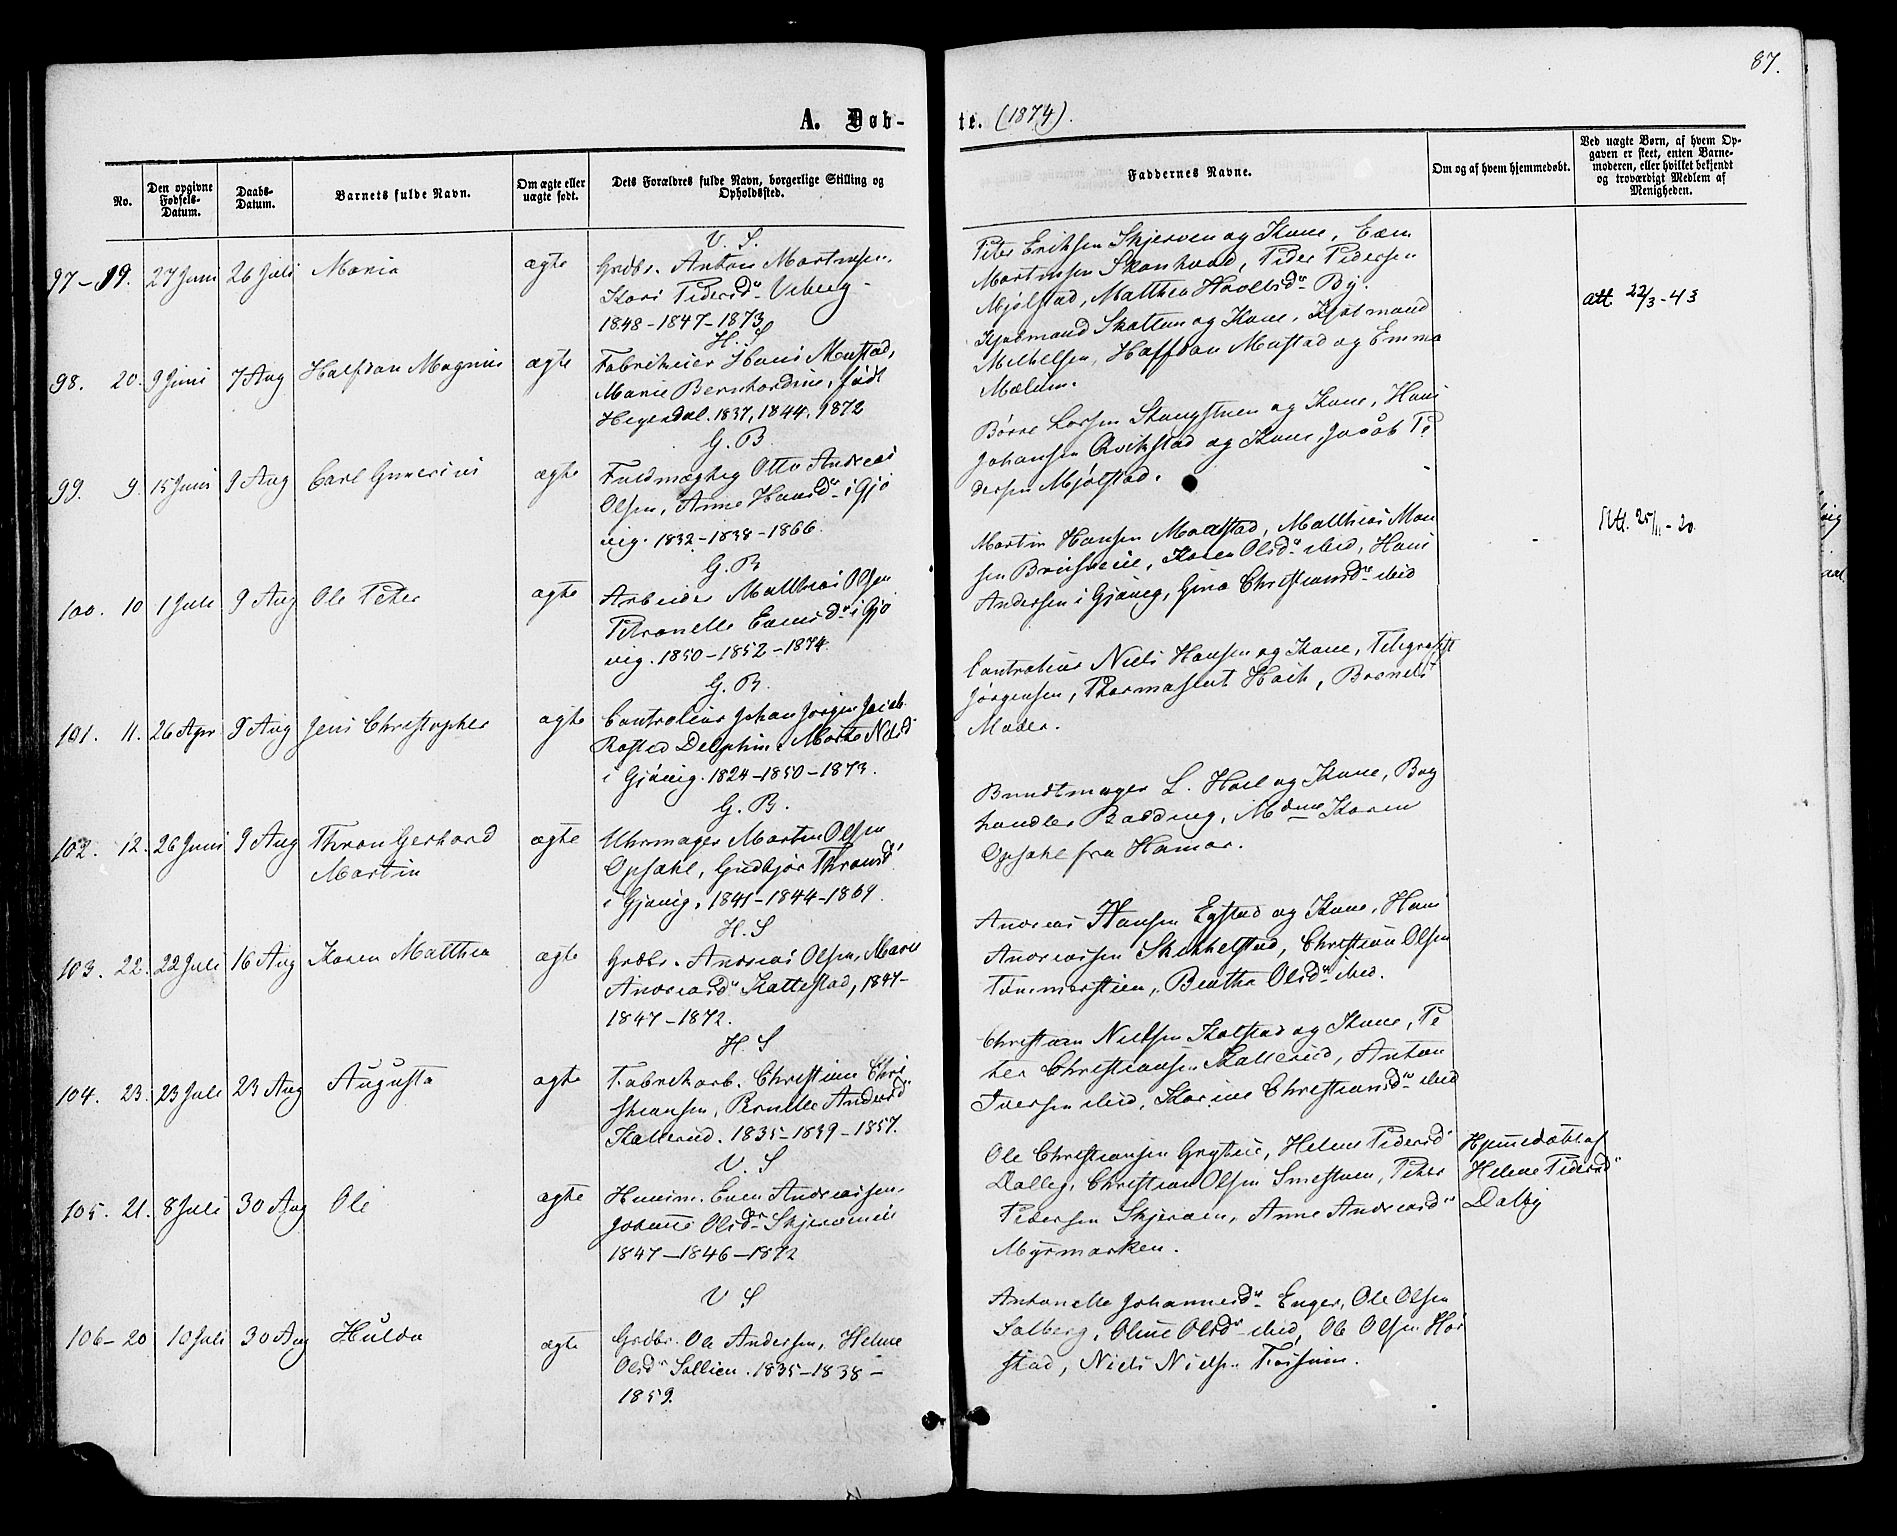 87.
A. Døb-
te. (1874).
No.
Den opgivne Fødsels-Datum.
Daabs-Datum.
Barnets fulde Navn.
Om ægte eller uægte født.
Dets Forældres fulde Navn, borgerlige Stilling og Opholdssted.
Faddernes Navne.
Om og af hvem hjemmedøbt.
Ved uægte Børn, af hvem Op-
gaven er skeet, enten Barne-
moderen, eller hvilket bekjendt
og troværdigt Medlem af
Menigheden.
V. S.
97-19. 27 Juni 26 Juli Maria ægte Grdbr. Anton Martinsen,
Kari Pedersd
1848-1847-1873
Peter Eriksen Skjerven og Kone, Even
Martinsen Skonhaad, Peder Pedersen
Mjølstad, Matthea By.
att 22/3-43
H. S
98. 20. 9 Juni 7 Aug Halfdan Magnus ægte Fabrikeier Hans Mustad,
Marie Bernhardine, født
Hegerdal. 1837, 1844, 1872
Skatten og Kone, Kjøbmand
Mikkelsen, Halfdan Mustad og Emma
Mælum.
G. B.
99. 9. 15 Juni 9 Aug Carl Gunerius ægte Fuldmægtig Otto Andreas
Olsen, Anne Hansd i Gjø
vig. 1832-1838-1866.
Børre Larsen Stangstuen og Kone, Hans
Johansen Qvikstad og Kone, Jacob Pe
dersen Mjølstad.
G. B
100. 10 1 Juli 9 Aug Ole Peter ægte Arbeider Matthias Olsen
Petronelle Evensd i Gjø
vig. 1850-1852-1874.
Martin Hansen Mattstad, Matthias
sen, Karen Olsd ibid, Hans
Andersen i Gjøvig, Gina Christiansd ibid
Att. 25/11-20.
G. B.
101. 11. 26 Apr 9 Aug Jens Christopher ægte Controllør Johan Jørgen Jacob
Rosted Delphin, Marte Nilsd
i Gjøvig. 1824-1850-1873.
Controllør Niels Hansen og Kone, Telegrafist
Jørgensen, Barnets
Moder.
G. B.
102. 12. 26 Juni 9 Aug Thron Gerhard
Martin ægte Uhrmager Martin Olsen
Opsahl, Gudbjør Thronsd
i Gjøvig. 1841-1844-1869.
Bundtmager L. Hoel og Kone, Bog
handler Bødding, Mdme Karen
Opsahl fra Hamar.
H. S
103. 22. 22 Juli 16 Aug Karen Matthea ægte Grdbr. Andreas Olsen, Marie
Andreasd Kattestad, 1841-
1847-1872.
Andreas Hansen Egstad og Kone, Hans
Andreassen Skikkelstad, Christian Olsen
Tømmerstien, Beathe Olsd ibid.
H. S
104. 23. 23 Juli 23 Aug Augusta ægte Fabrikarb. Christian Chri
stiansen, Pernille Andersd
Kallerud. 1835-1839-1857.
Christian Nielsen Kolstad og Kone, Pe
ter Christiansen Kallerud, Anton
Iversen ibid, Karine Christiansd ibid
V. S
105. 21. 8 Juli 30 Aug Ole ægte Huusm. Even Andreassen,
Johanne Olsdr Skjerveneie
1847-1846-1872
Ole Christiansen Gryteie, Helene Pedersd
Dalby, Christian Olsen Smestuen, Peter
Pedersen Skjerven, Anne Andreasd
Myrmarken.
Hjemmedøbt af
Helene Pedersd
Dalby
V S
106-20 10 Juli 30 Aug Hulda ægte Grdbr. Ole Andersen, Helene
Olsd Sollien. 1835-1838-
1859.
Antonette Johannesd Enger, Ole Olsen
Solberg, Oline Olsd ibid, Ole Olsen Hør
stad, Niels Nielsen Fossum.